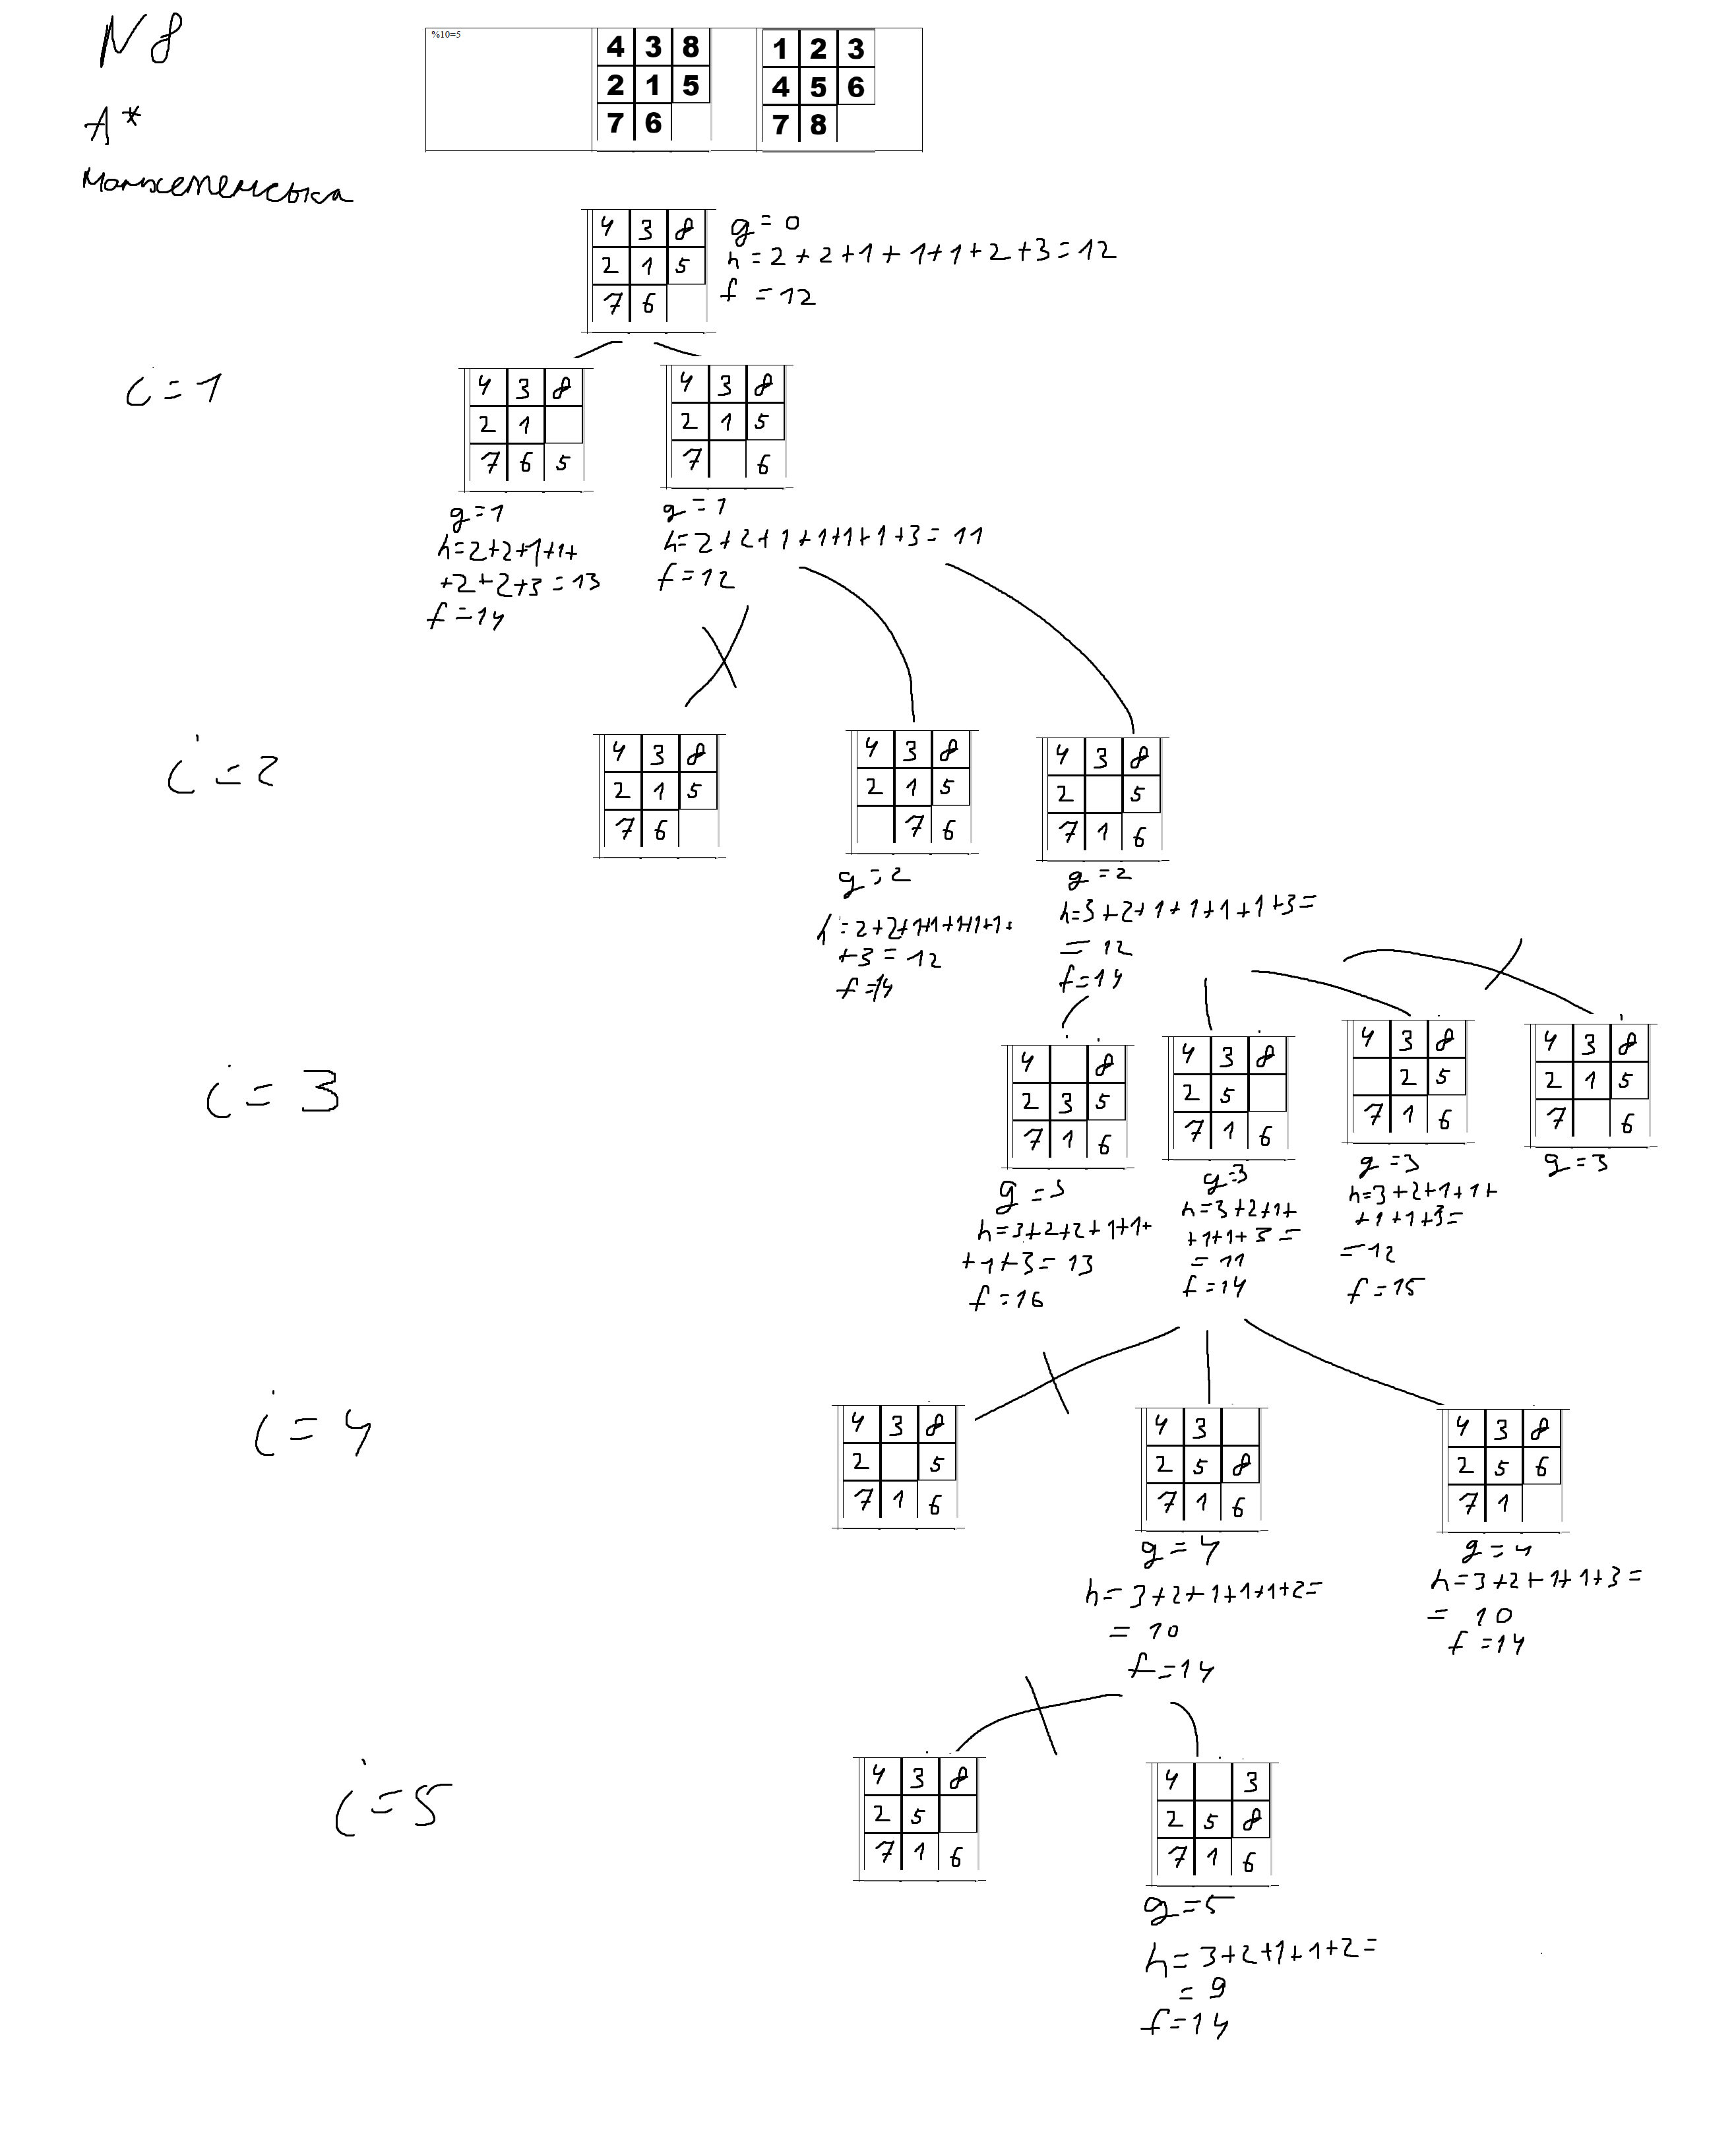 N8
A*
Манхетенська
%10=5
4 3 8
2 1 5
7 6
1 2 3
4 5 6
7 8
4 3 8
2 1 5
7 6
g=0
h=2+2+1+1+1+2+3=12
f=12
i=1
4 3 8
2 1
7 6 5
g=1
h=2+2+1+1+
+2+2+3=13
f=14
4 3 8
2 1 5
7 6
g=1
h=2+2+1+1+1+1+3=11
f=12
i=2
4 3 8
2 1 5
7 6
4 3 8
2 1 5
7 6
g=2
h=2+2+1+1+1+1+1+
+3=12
f=14
4 3 8
2 5
7 1 6
g=2
h=3+2+1+1+1+1+3=
=12
f=14
i=3
4 8
2 3 5
7 1 6
g=3
h=3+2+2+1+1+
+1+3=13
f=16
4 3 8
2 5
7 1 6
g=3
h=3+2+1+
+1+1+3=
=11
f=14
4 3 8
2 5
7 1 6
g=3
h=3+2+1+1+
+1+1+3=
=12
f=15
4 3 8
2 1 5
7 6
g=3
i=4
4 3 8
2 5
7 1 6
4 3
2 5 8
7 1 6
g=4
h=3+2+1+1+1+2=
=10
f=14
4 3 8
2 5 6
7 1
g=4
h=3+2+1+1+3=
=10
f=14
i=5
4 3 8
2 5
7 1 6
4 3
2 5 8
7 1 6
g=5
h=3+2+1+1+2=
=9
f=14